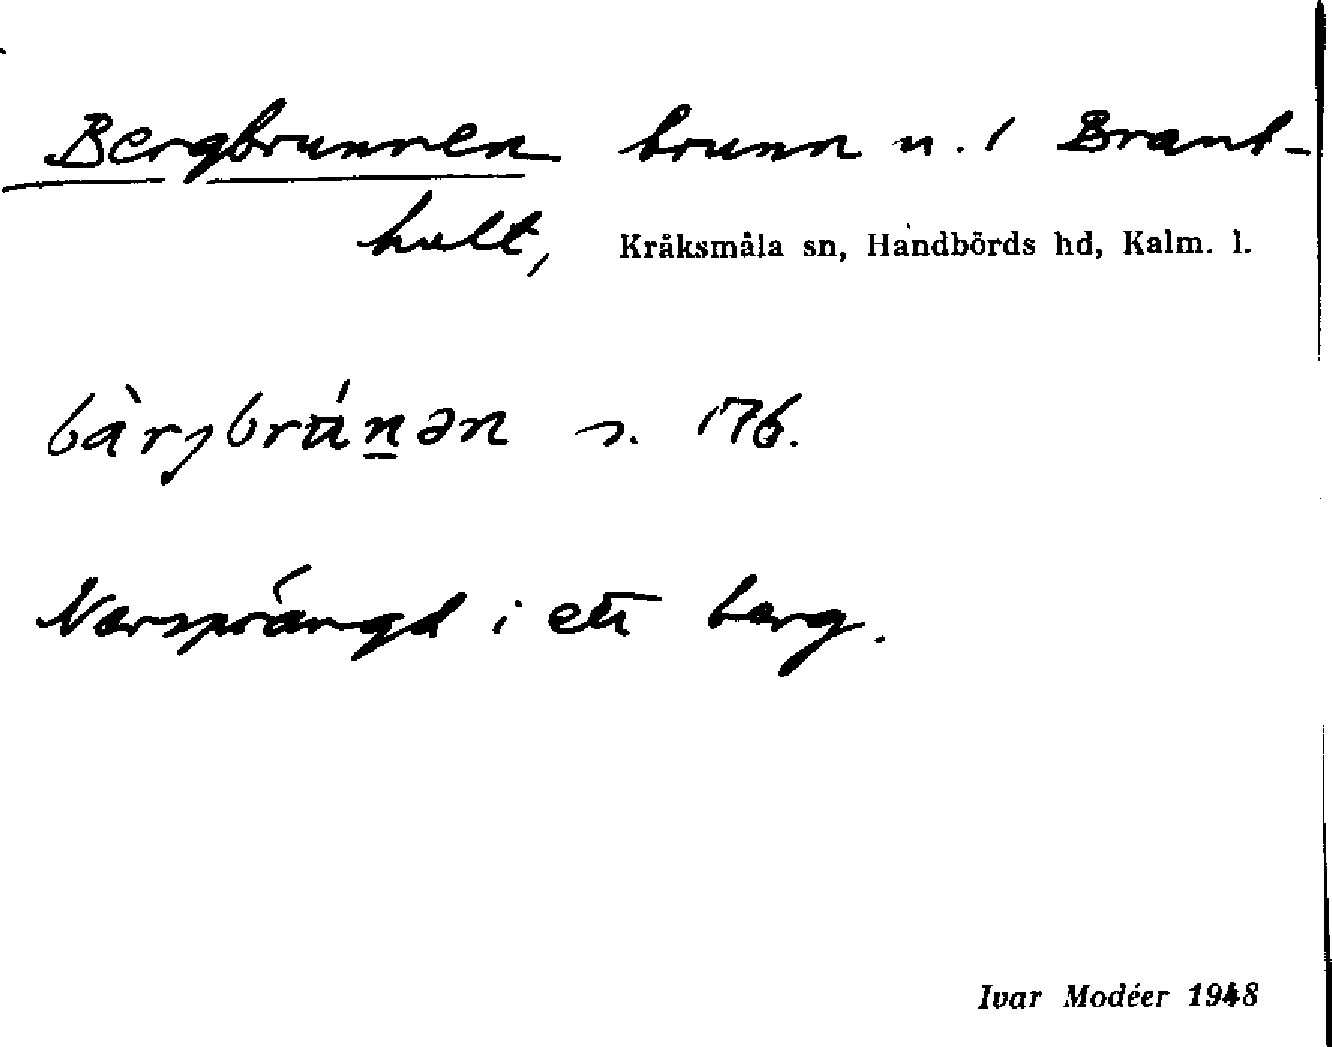 Bergbrunnen brunn u. / Brant-
hult, Kråksmåla sn, Handbörds hd, Kalm. l.
bàrjbrúnən s. 176.
Nersprängd i ett berg.
Ivar Modéer 1948